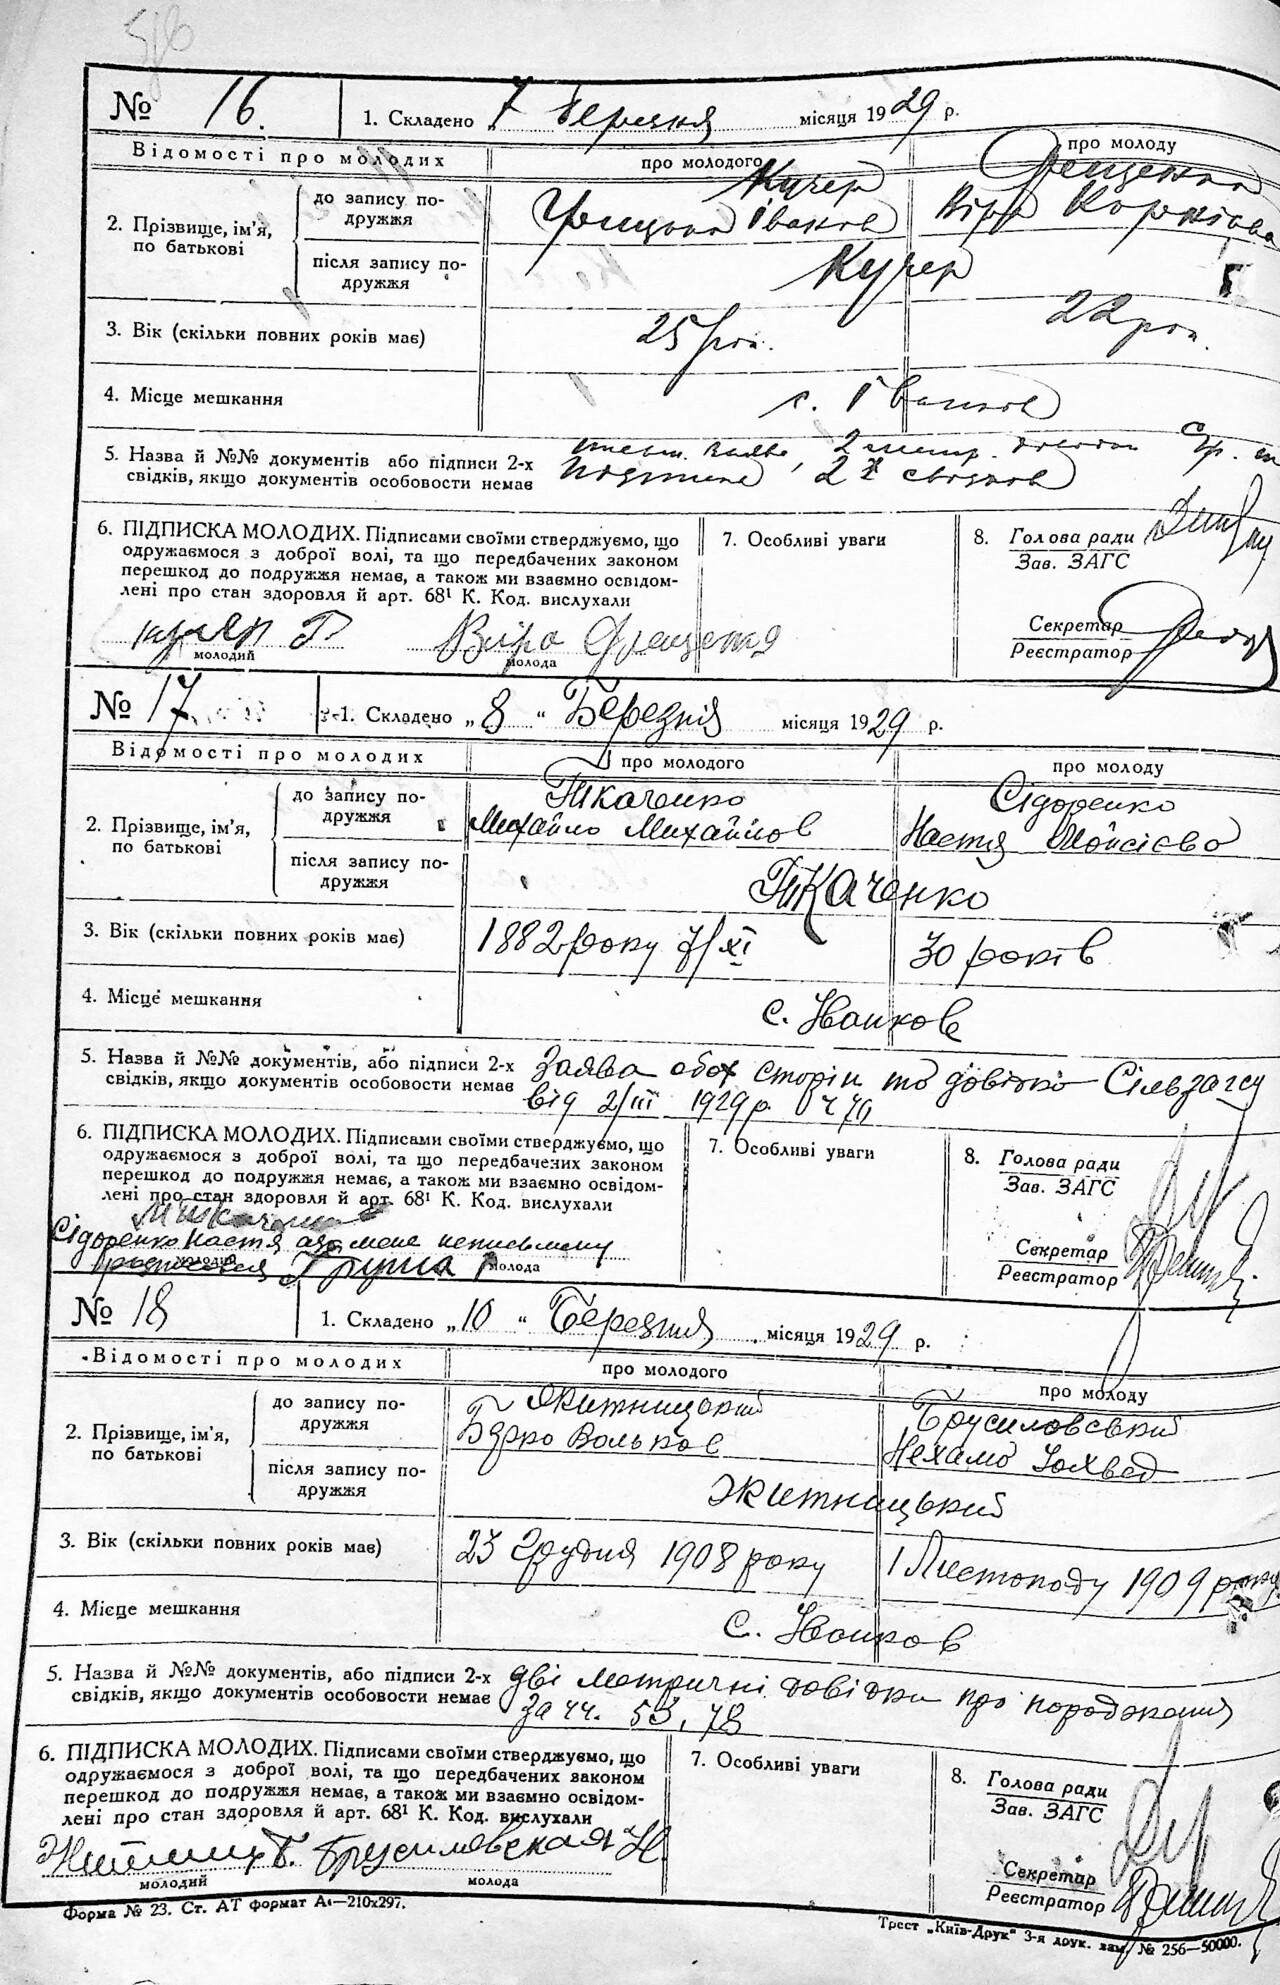 № 16. 1. Складено „7 Березня місяця 1929 р.
Відомості про молодих про молодого про молоду
2. Прізвище, ім'я, по батькові
до запису по-
дружжя
Кучер
Іванов
Віра
після запису по-
дружжя
Кучер
3. Вік (скільки повних років має) 25 рок. 22 рок.
4. Місце мешкання с. Іванков
5. Назва й №№ документів або підписи 2-х
свідків, якщо документів особовости немає 2х свідков
6. ПІДПИСКА МОЛОДИХ. Підписами своїми стверджуємо, що
одружаємося з доброї волі, та що передбачених законом
перешкод до подружжя немає, а також ми взаємно освідом-
лені про стан здоровля й арт. 68¹ К. Код. вислухали
Кучер Г Віра
молодий молода
7. Особливі уваги
8. Голова ради
Зав. ЗАГС
Секретар
Реєстратор
№ 17 1. Складено „8“ Березня місяця 1929 р.
Відомості про молодих про молодого про молоду
2. Прізвище, ім'я,
по батькові
до запису по-
дружжя
Ткаченко
Михайло Михайлов
Сідоренко
Настя Мойсієва
після запису по-
дружжя
Ткаченко
3. Вік (скільки повних років має) 1882 року 7/XI 30 років
4. Місце мешкання с. Иванков
5. Назва й №№ документів, або підписи 2-х Заява обох сторін та довідка Сільзагсу
свідків, якщо документів особовости немає від 2/III 1929 р.
6. ПІДПИСКА МОЛОДИХ. Підписами своїми стверджуємо, що
одружаємося з доброї волі, та що передбачених законом
перешкод до подружжя немає, а також ми взаємно освідом-
лені про стан здоровля й арт. 68¹ К. Код. вислухали
М Ткаченко
Сідоренко Настя а за мене неписьмену
росписался Груша
молодий молода
7. Особливі уваги
8. Голова ради
Зав. ЗАГС
Секретар
Реєстратор
№ 18 1. Складено „10“ Березня місяця 1929 р.
Відомості про молодих про молодого про молоду
2. Прізвище, ім'я,
по батькові
до запису по-
дружжя
Житницький
Берко Вольков
Брусиловський
Нехама
після запису по-
дружжя
Житницький
3. Вік (скільки повних років має) 23 Грудня 1908 року 1 Листопаду 1909 року
4. Місце мешкання с. Иванков
5. Назва й №№ документів, або підписи 2-х дві метричні довідки про народження
свідків, якщо документів особовости немає за чч. 53, 78
6. ПІДПИСКА МОЛОДИХ. Підписами своїми стверджуємо, що
одружаємося з доброї волі, та що передбачених законом
перешкод до подружжя немає, а також ми взаємно освідом-
лені про стан здоровля й арт. 68¹ К. Код. вислухали
Б. Брусиловская Н.
молодий молода
7. Особливі уваги
8. Голова ради
Зав. ЗАГС
Секретар
Реєстратор
Форма № 23. Ст. АТ формат А₄—210х297.
Трест „Київ-Друк“ 3-я друк. зам. № 256—50000.